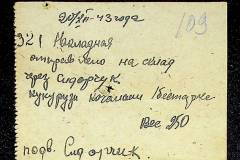 20/XII-43 года
109
921 Накладная
отправлено на склад
через Сидорчук
кукурузи качанами
Вес 250
подв. Сидорчик